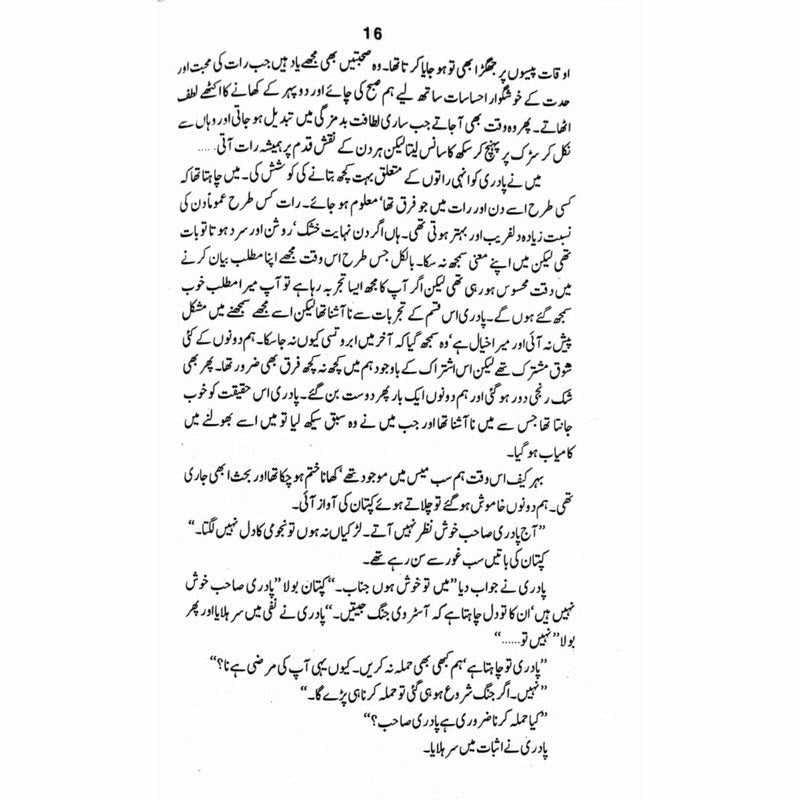 16
اوقات پیسوں پر جھگڑا بھی تو ہو جایا کرتا تھا۔ وہ صحبتیں بھی مجھے یاد ہیں جب رات کی محبت اور
حدت کے خوشگوار احساسات ساتھ لیے ہم صبح کی چائے اور دوپہر کے کھانے کا اکٹھے لطف
اٹھاتے۔ پھر وہ وقت بھی آ جاتے جب ساری لطافت بدمزگی میں تبدیل ہو جاتی اور وہاں سے
نکل کر سڑک پر پہنچ کر سکھ کا سانس لیتا لیکن ہر دن کے نقش قدم پر ہمیشہ رات آتی.....
میں نے پادری کو انہی راتوں کے متعلق بہت کچھ بتانے کی کوشش کی۔ میں چاہتا تھا کہ
کسی طرح اسے دن اور رات میں جو فرق تھا‘ معلوم ہو جائے۔ رات کس طرح عموماً دن کی
نسبت زیادہ دلفریب اور بہتر ہوتی تھی۔ ہاں اگر دن نہایت خشک‘ روشن اور سرد ہوتا تو بات
تھی لیکن میں اپنے معنی سمجھ نہ سکا۔ بالکل جس طرح اس وقت مجھے اپنا مطلب بیان کرنے
میں دقت محسوس ہو رہی تھی لیکن اگر آپ کا مجھ ایسا تجربہ رہا ہے تو آپ میرا مطلب خوب
سمجھ گئے ہوں گے۔ پادری اس قسم کے تجربات سے نا آشنا تھا لیکن اسے مجھے سمجھنے میں مشکل
پیش نہ آئی اور میرا خیال ہے‘ وہ سمجھ گیا کہ آخر میں ابروتسی کیوں نہ جا سکا۔ ہم دونوں کے کئی
شوق مشترک تھے لیکن اس اشتراک کے باوجود ہم میں کچھ نہ کچھ فرق بھی ضرور تھا۔ پھر بھی
شک رنجی دور ہو گئی اور ہم دونوں ایک بار پھر دوست بن گئے۔ پادری اس حقیقت کو خوب
جانتا تھا جس سے میں نا آشنا تھا اور جب میں نے وہ سبق سیکھ لیا تو میں اسے بھولنے میں
کامیاب ہو گیا۔
بہر کیف اس وقت ہم سب میس میں موجود تھے‘ کھانا ختم ہو چکا تھا اور بحث ابھی جاری
تھی۔ ہم دونوں خاموش ہو گئے تو چلاتے ہوئے کپتان کی آواز آئی۔
”آج پادری صاحب خوش نظر نہیں آتے۔ لڑکیاں نہ ہوں تو نجومی کا دل نہیں لگتا۔“
کپتان کی باتیں سب غور سے سن رہے تھے۔
پادری نے جواب دیا ”میں تو خوش ہوں جناب۔“ کپتان بولا ”پادری صاحب خوش
نہیں ہیں‘ ان کا تو دل چاہتا ہے کہ آسٹروی جنگ جیتیں۔“ پادری نے نفی میں سر ہلایا اور پھر
بولا ”نہیں تو......“
”پادری تو چاہتا ہے‘ ہم کبھی بھی حملہ نہ کریں۔ کیوں یہی آپ کی مرضی ہے نا؟“
”نہیں۔ اگر جنگ شروع ہو ہی گئی تو حملہ کرنا ہی پڑے گا۔“
”کیا حملہ کرنا ضروری ہے پادری صاحب؟“
پادری نے اثبات میں سر ہلایا۔